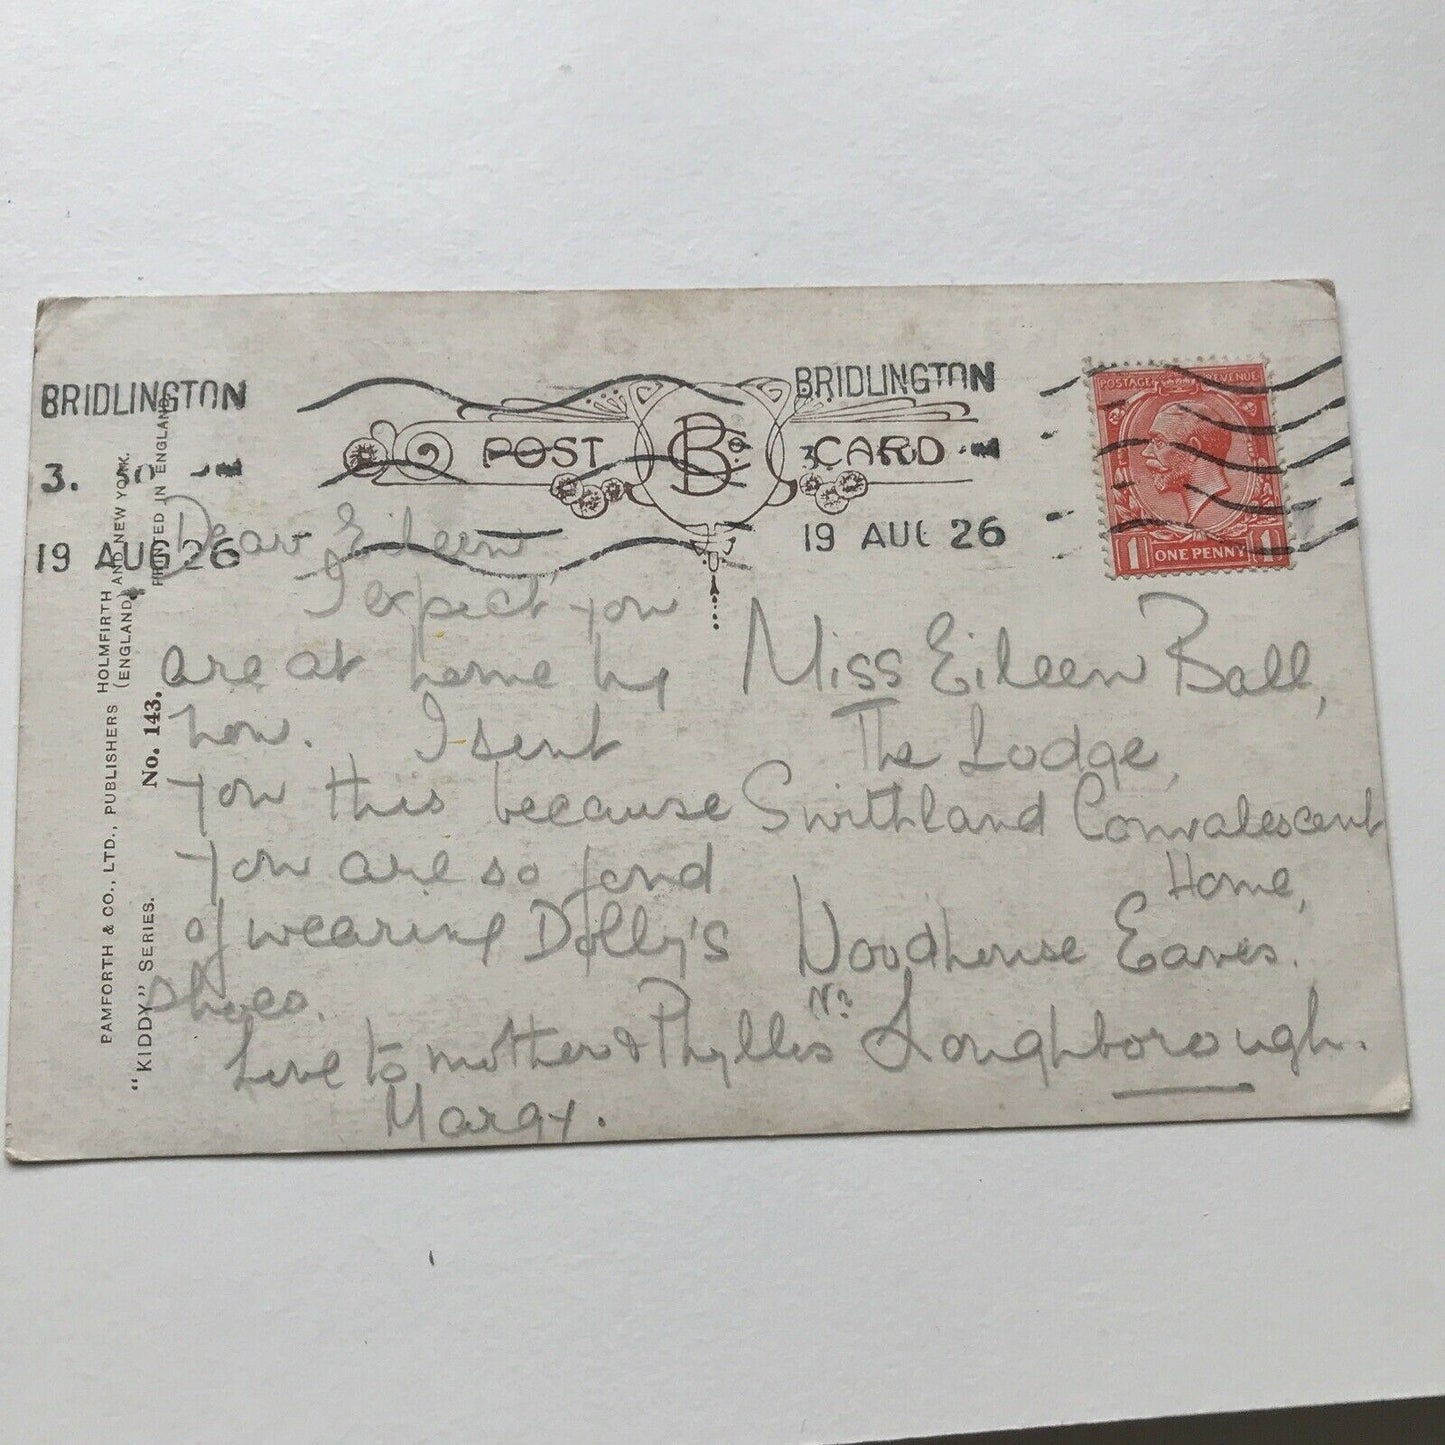 BRIDLINGTON
3.
19 AUG 26
POST CARD
BRIDLINGTON
3.
19 AUG 26
POSTAGE REVENUE
1 ONE PENNY 1
BAMFORTH & CO., LTD., PUBLISHERS HOLMFIRTH (ENGLAND) AND NEW YORK.
"KIDDY" SERIES. No. 143. PRINTED IN ENGLAND
Dear Eileen
I expect you
are at home by
now. I sent
you this because
you are so fond
of wearing Dolly's
shoes.
Love to mother & Phyllis
Margy.
Miss Eileen Ball,
The Lodge,
Swithland Convalescent
Home,
Woodhouse Eaves.
Nr Loughborough.